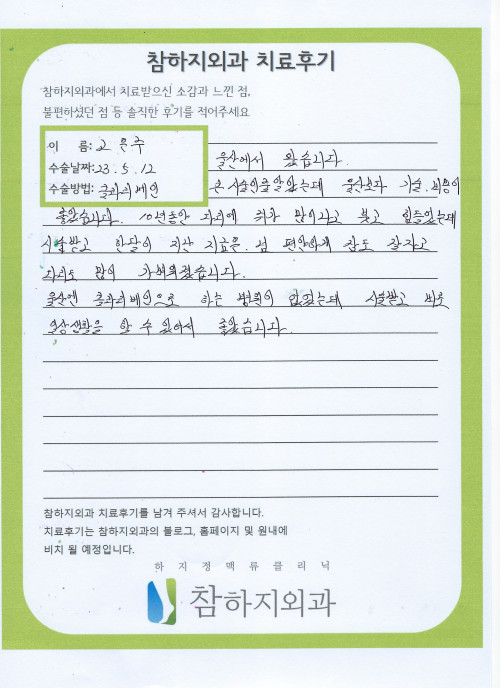 참하지외과 치료후기
참하지외과에서 치료받으신 소감과 느낀 점,
불편하셨던 점 등 솔직한 후기를 적어주세요
이 름: 고은주
수술날짜: 23. 5. 12
수술방법: 클라리베인
울산에서 왔습니다.
큰 시술인줄 알았는데 울산보다 기술, 비용이
좋았습니다. 10년동안 다리에 쥐가 많이나고 붓고 힘들었는데
시술받고 한달이 지난 지금은 넘 편안하게 잠도 잘자고
다리도 많이 가벼워졌습니다.
울산엔 클라리베인으로 하는 병원이 없었는데 시술받고 바로
일상생활을 할 수 있어서 좋았습니다.
참하지외과 치료후기를 남겨 주셔서 감사합니다.
치료후기는 참하지외과의 블로그, 홈페이지 및 원내에
비치 될 예정입니다.
하지정맥류클리닉
참하지외과